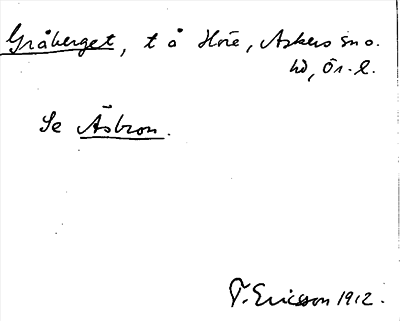 Gråberget, t å Hore, Askers sn o.
hd, Ör. l.
Se Åsbron.
T. Ericsson 1912.